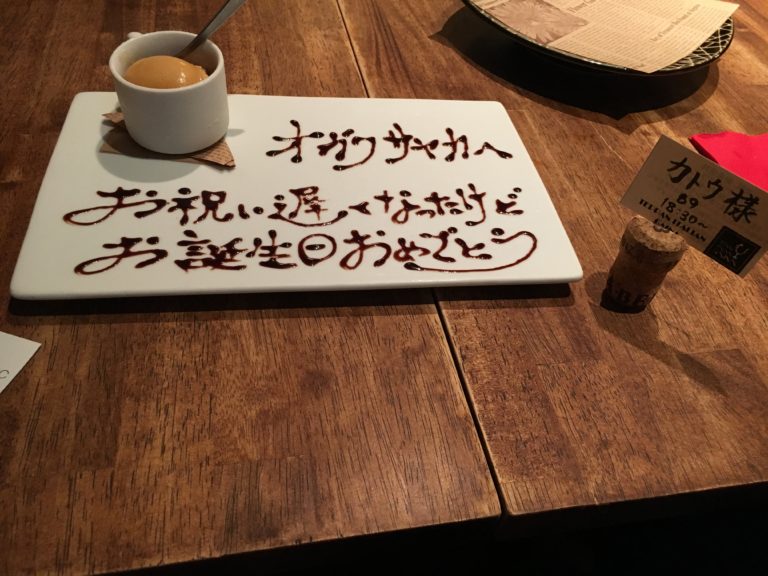 オガワサヤカへ
お祝い遅くなったけど
お誕生日おめでとう
カトウ様
B9
18:30~
ITALIAN